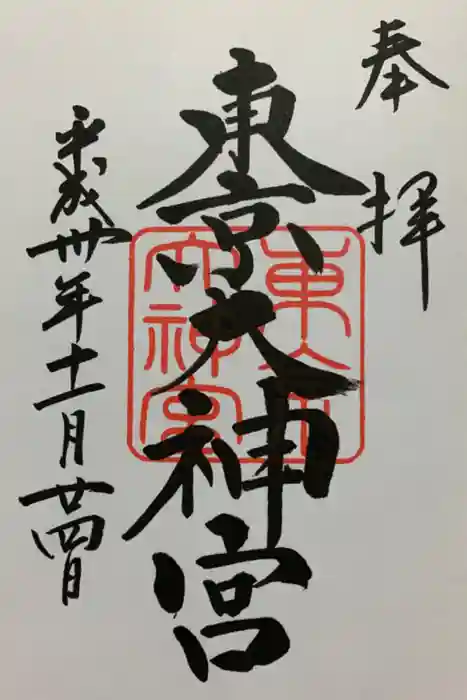 奉拝
東京大神宮
平成丗年十一月廿四日
東京大神宮